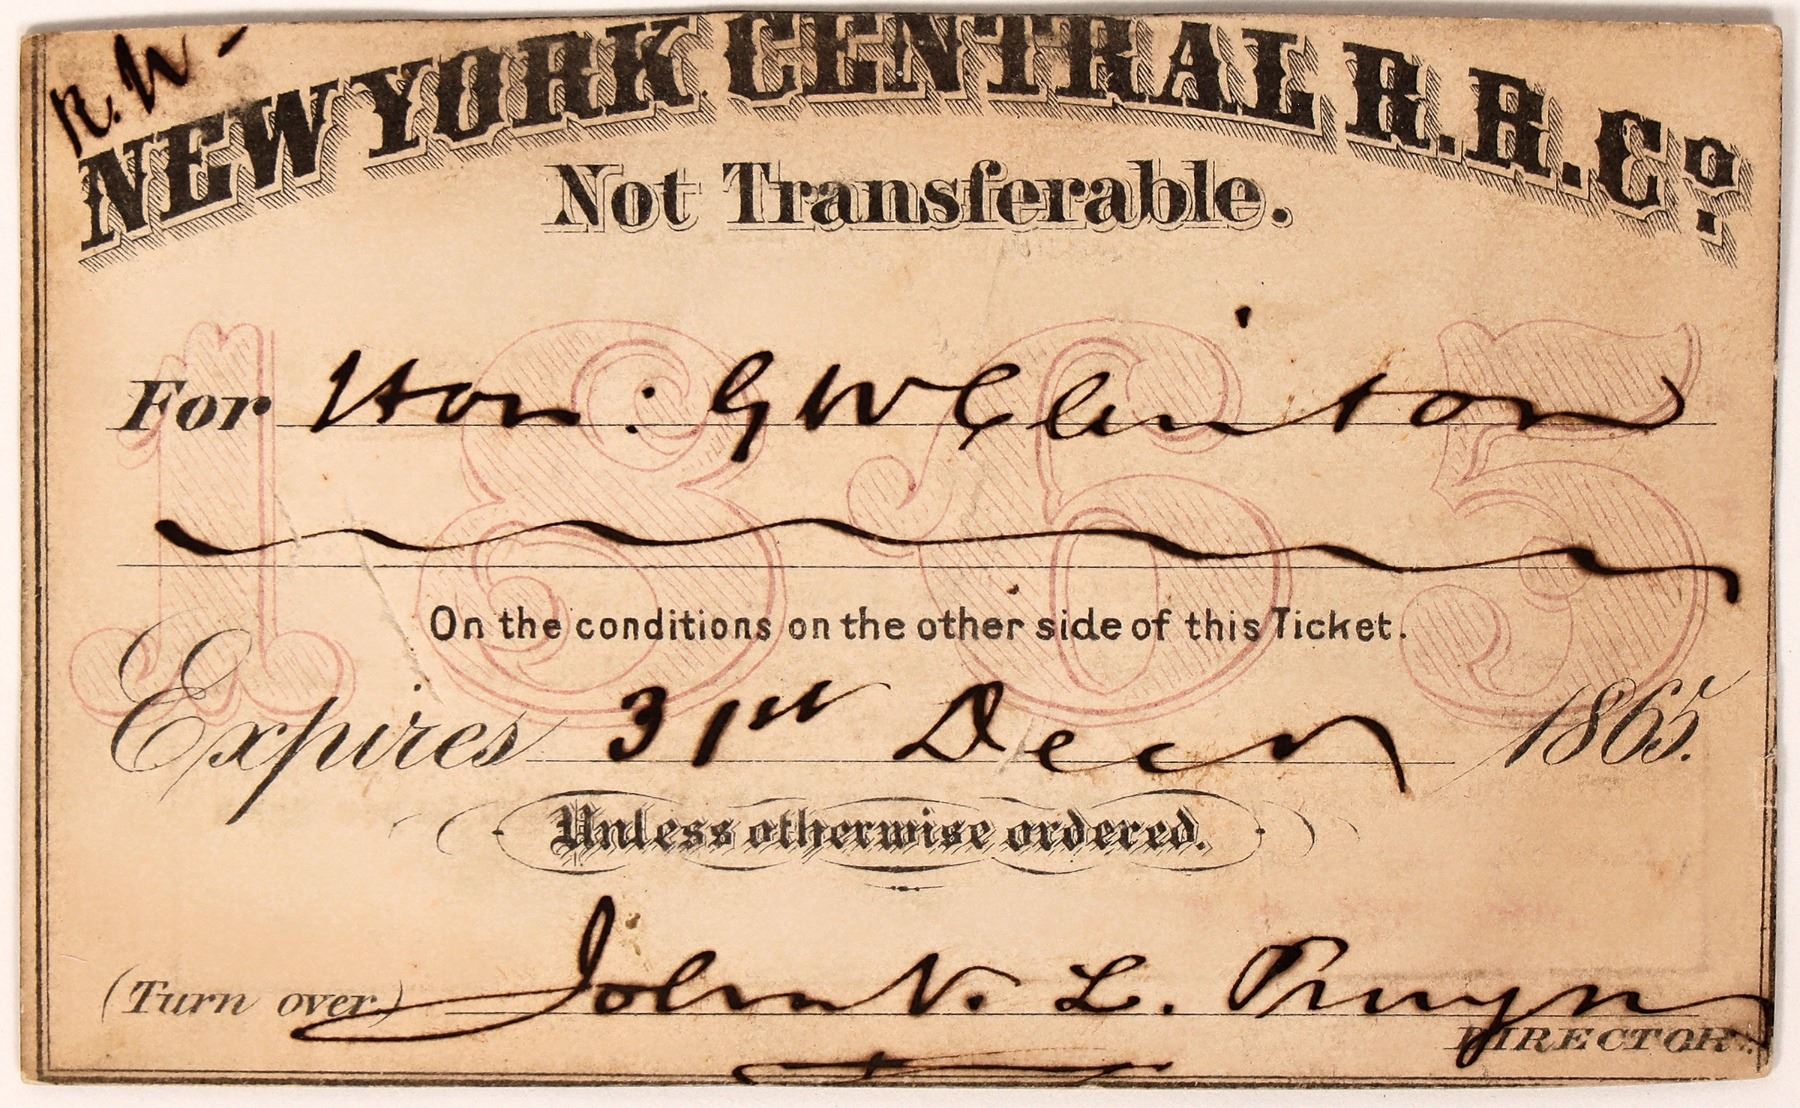 R. W -
NEW YORK CENTRAL R.R.Co.
Not Transferable.
1865
For Hon: G W Clinton
On the conditions on the other side of this Ticket.
Expires 31st Decr 1865.
Unless otherwise ordered.
(Turn over) John V. L. Pruyn
DIRECTOR.